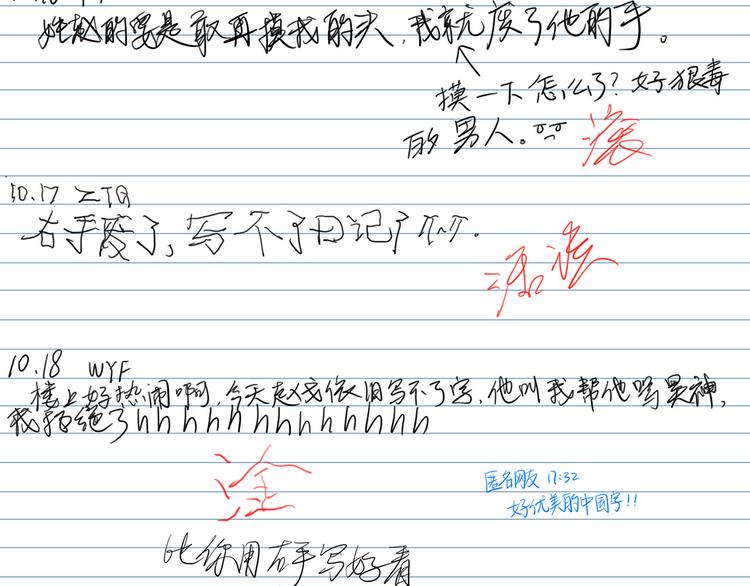 姓赵的要是敢再摸我的头,我就废了他的手。
摸一下怎么了?好狠毒
的男人。 滚
10.17 ZTQ
右手废了,写不了日记了T~T.
活该
10.18 WYF
楼上好热闹啊,今天赵戈依旧写不了字,他叫我帮他骂昊神,
我拒绝了hhhhhhhhhhhhh
淦
匿名网友 17:32
好优美的中国字!!
比你用右手写好看